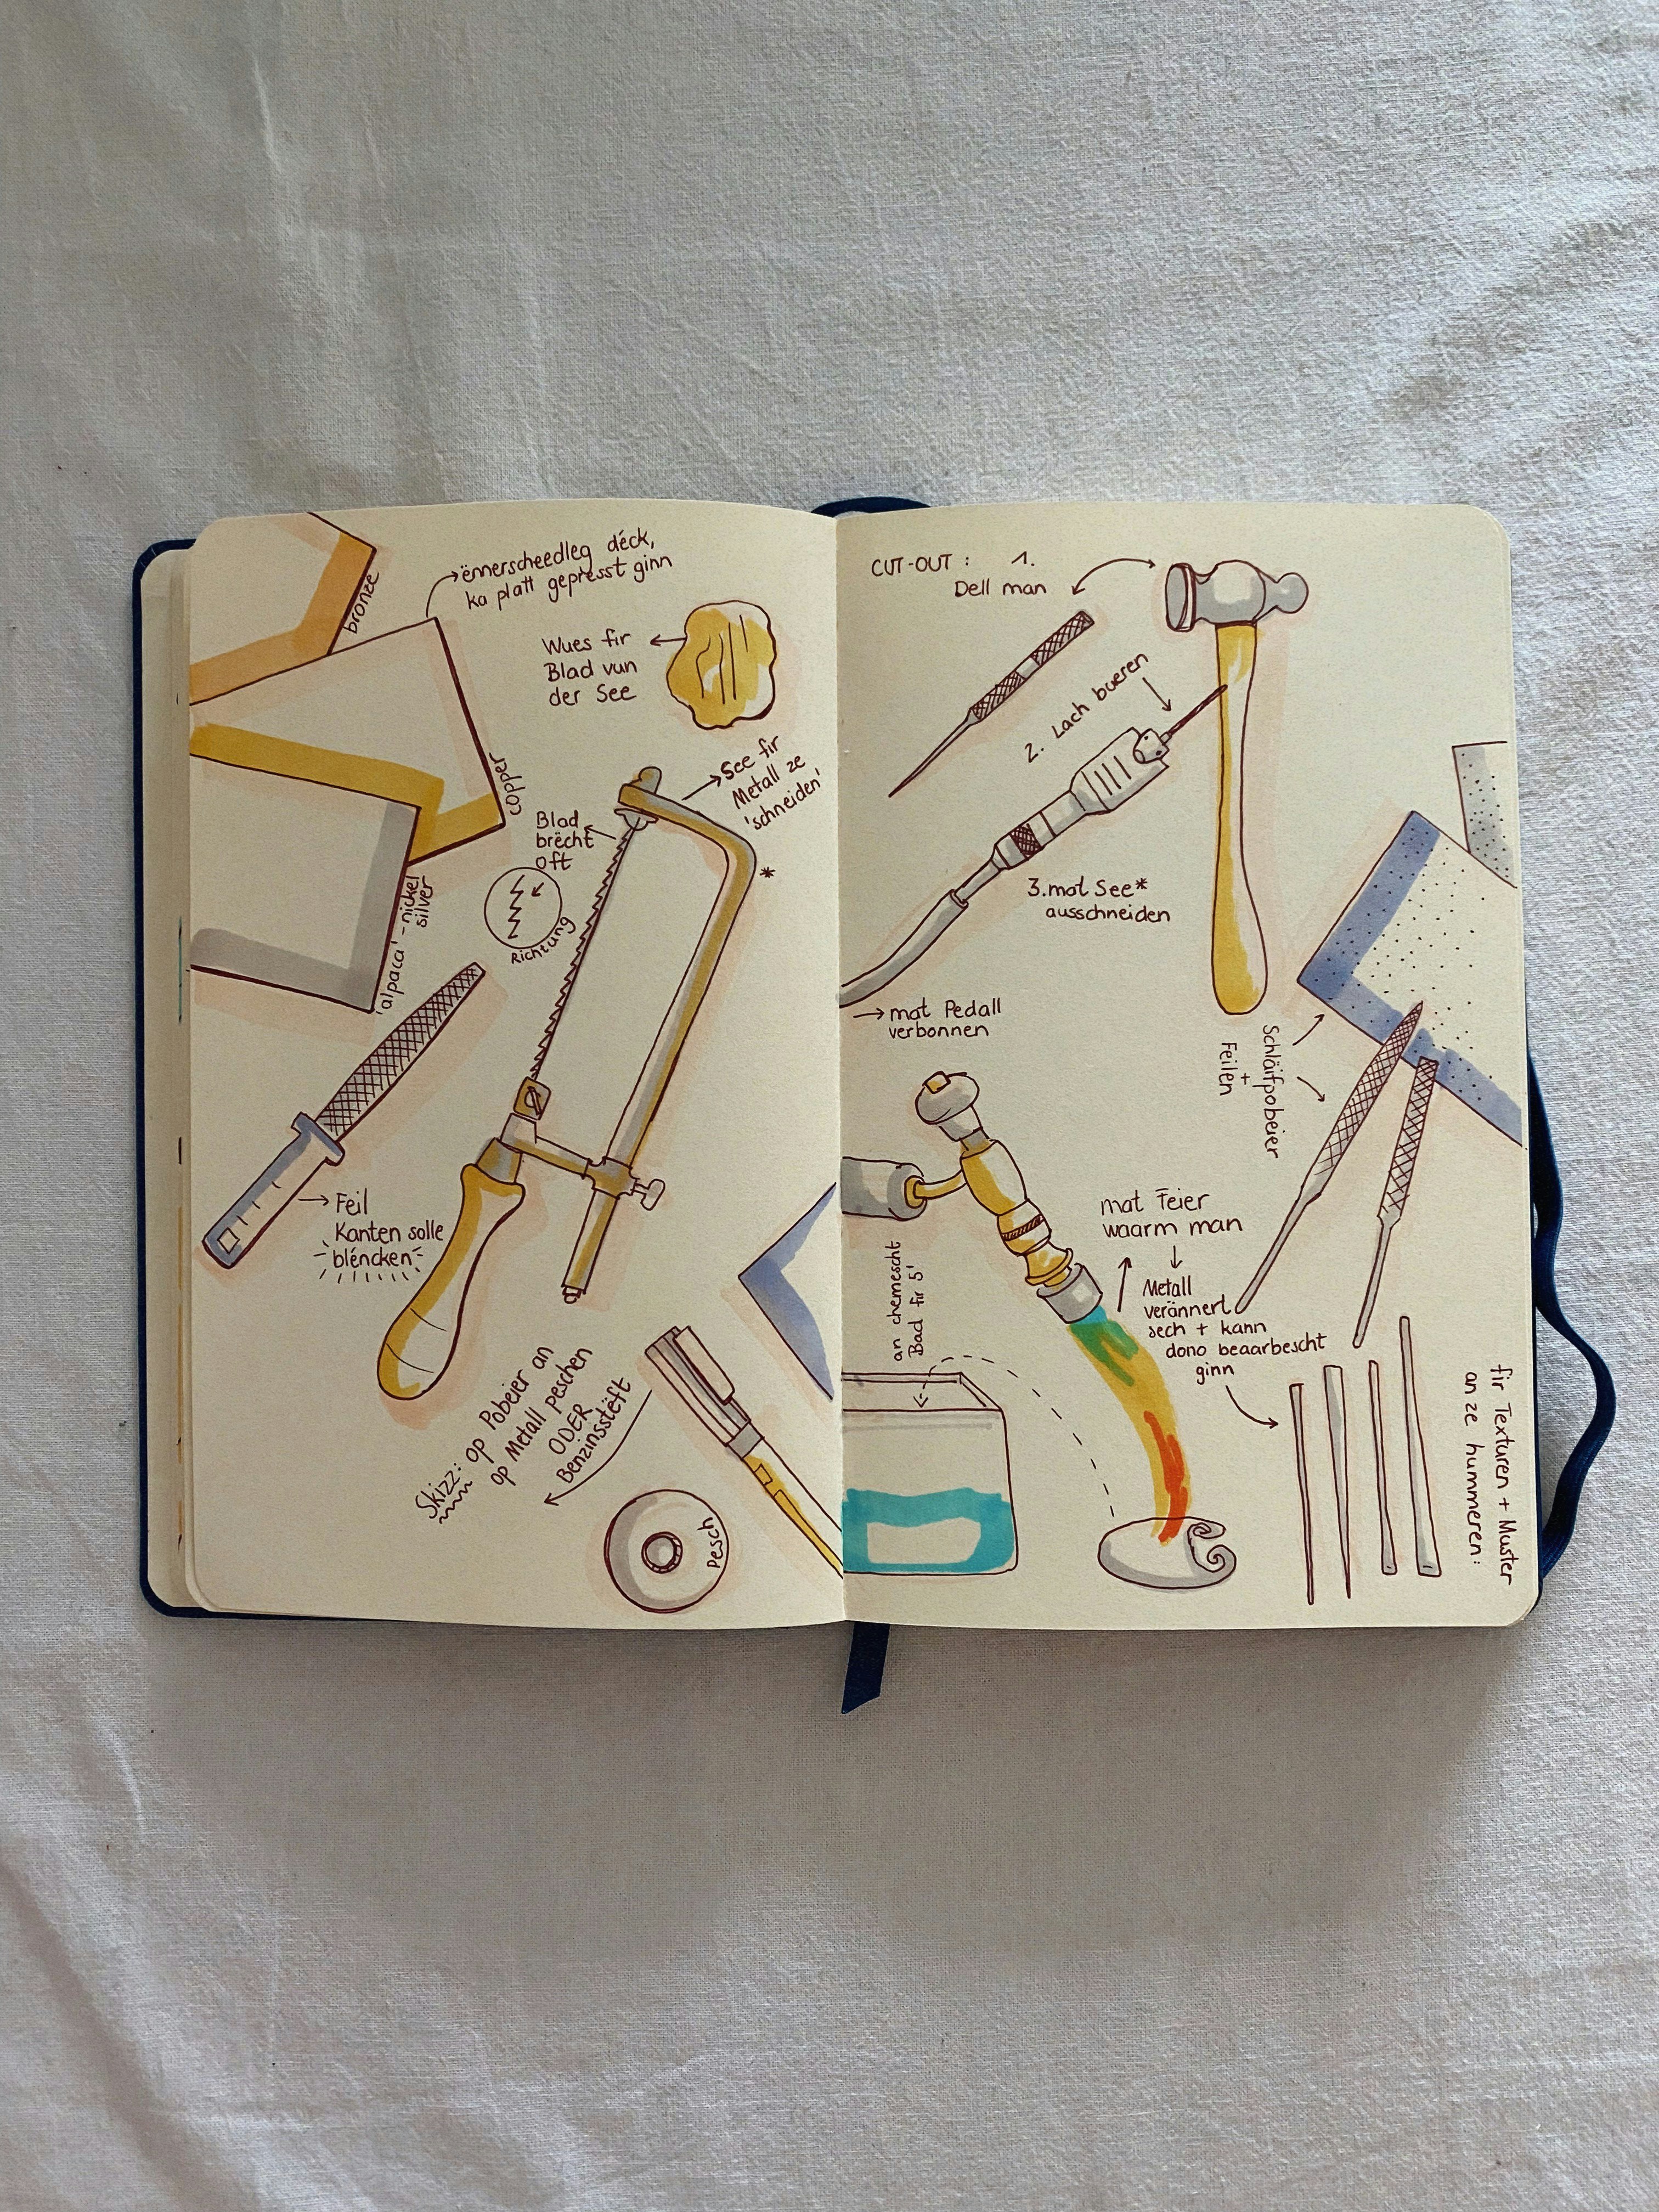 bronze
ënnerscheedleg déck,
ka platt gepresst ginn
Wues fir
Blad vun
der See
copper
See fir
Metall ze
'schneiden'
*
Blad
brëcht
oft
Richtung
'alpaca' - nickel
silver
Feil
Kanten solle
bléncken
Skizz: op Pobeier an
op Metall peschen
ODER
Benzinsstëft
Pesch
CUT-OUT : 1.
Dell man
2. Lach bueren
3. mat See*
ausschneiden
mat Pedall
verbonnen
Schläifpobeier
+
Feilen
mat Feier
waarm man
Metall
verännert
sech + kann
dono beaarbescht
ginn
an chemescht
Bad fir 5'
fir Texturen + Muster
an ze hummeren: